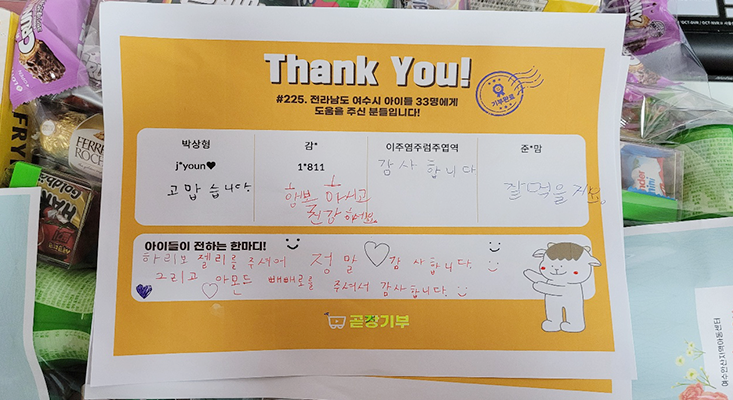 Thank You!
#225. 전라남도 여수시 아이들 33명에게
도움을 주신 분들입니다!
기부완료
박상형
감*
이주염주럼주엽역
준*맘
j*youn♥
1*811
감사합니다
고맙습니다
행복하시고
건강하세요
잘먹을게요
아이들이 전하는 한마디!
하리보 젤리를 주셔서 정말 ♡ 감사합니다.
그리고 아몬드 빼빼로를 주셔서 감사합니다.
곧장기부
FERRERO
ROCHER
kinder
mini
여수인산지역아동센터